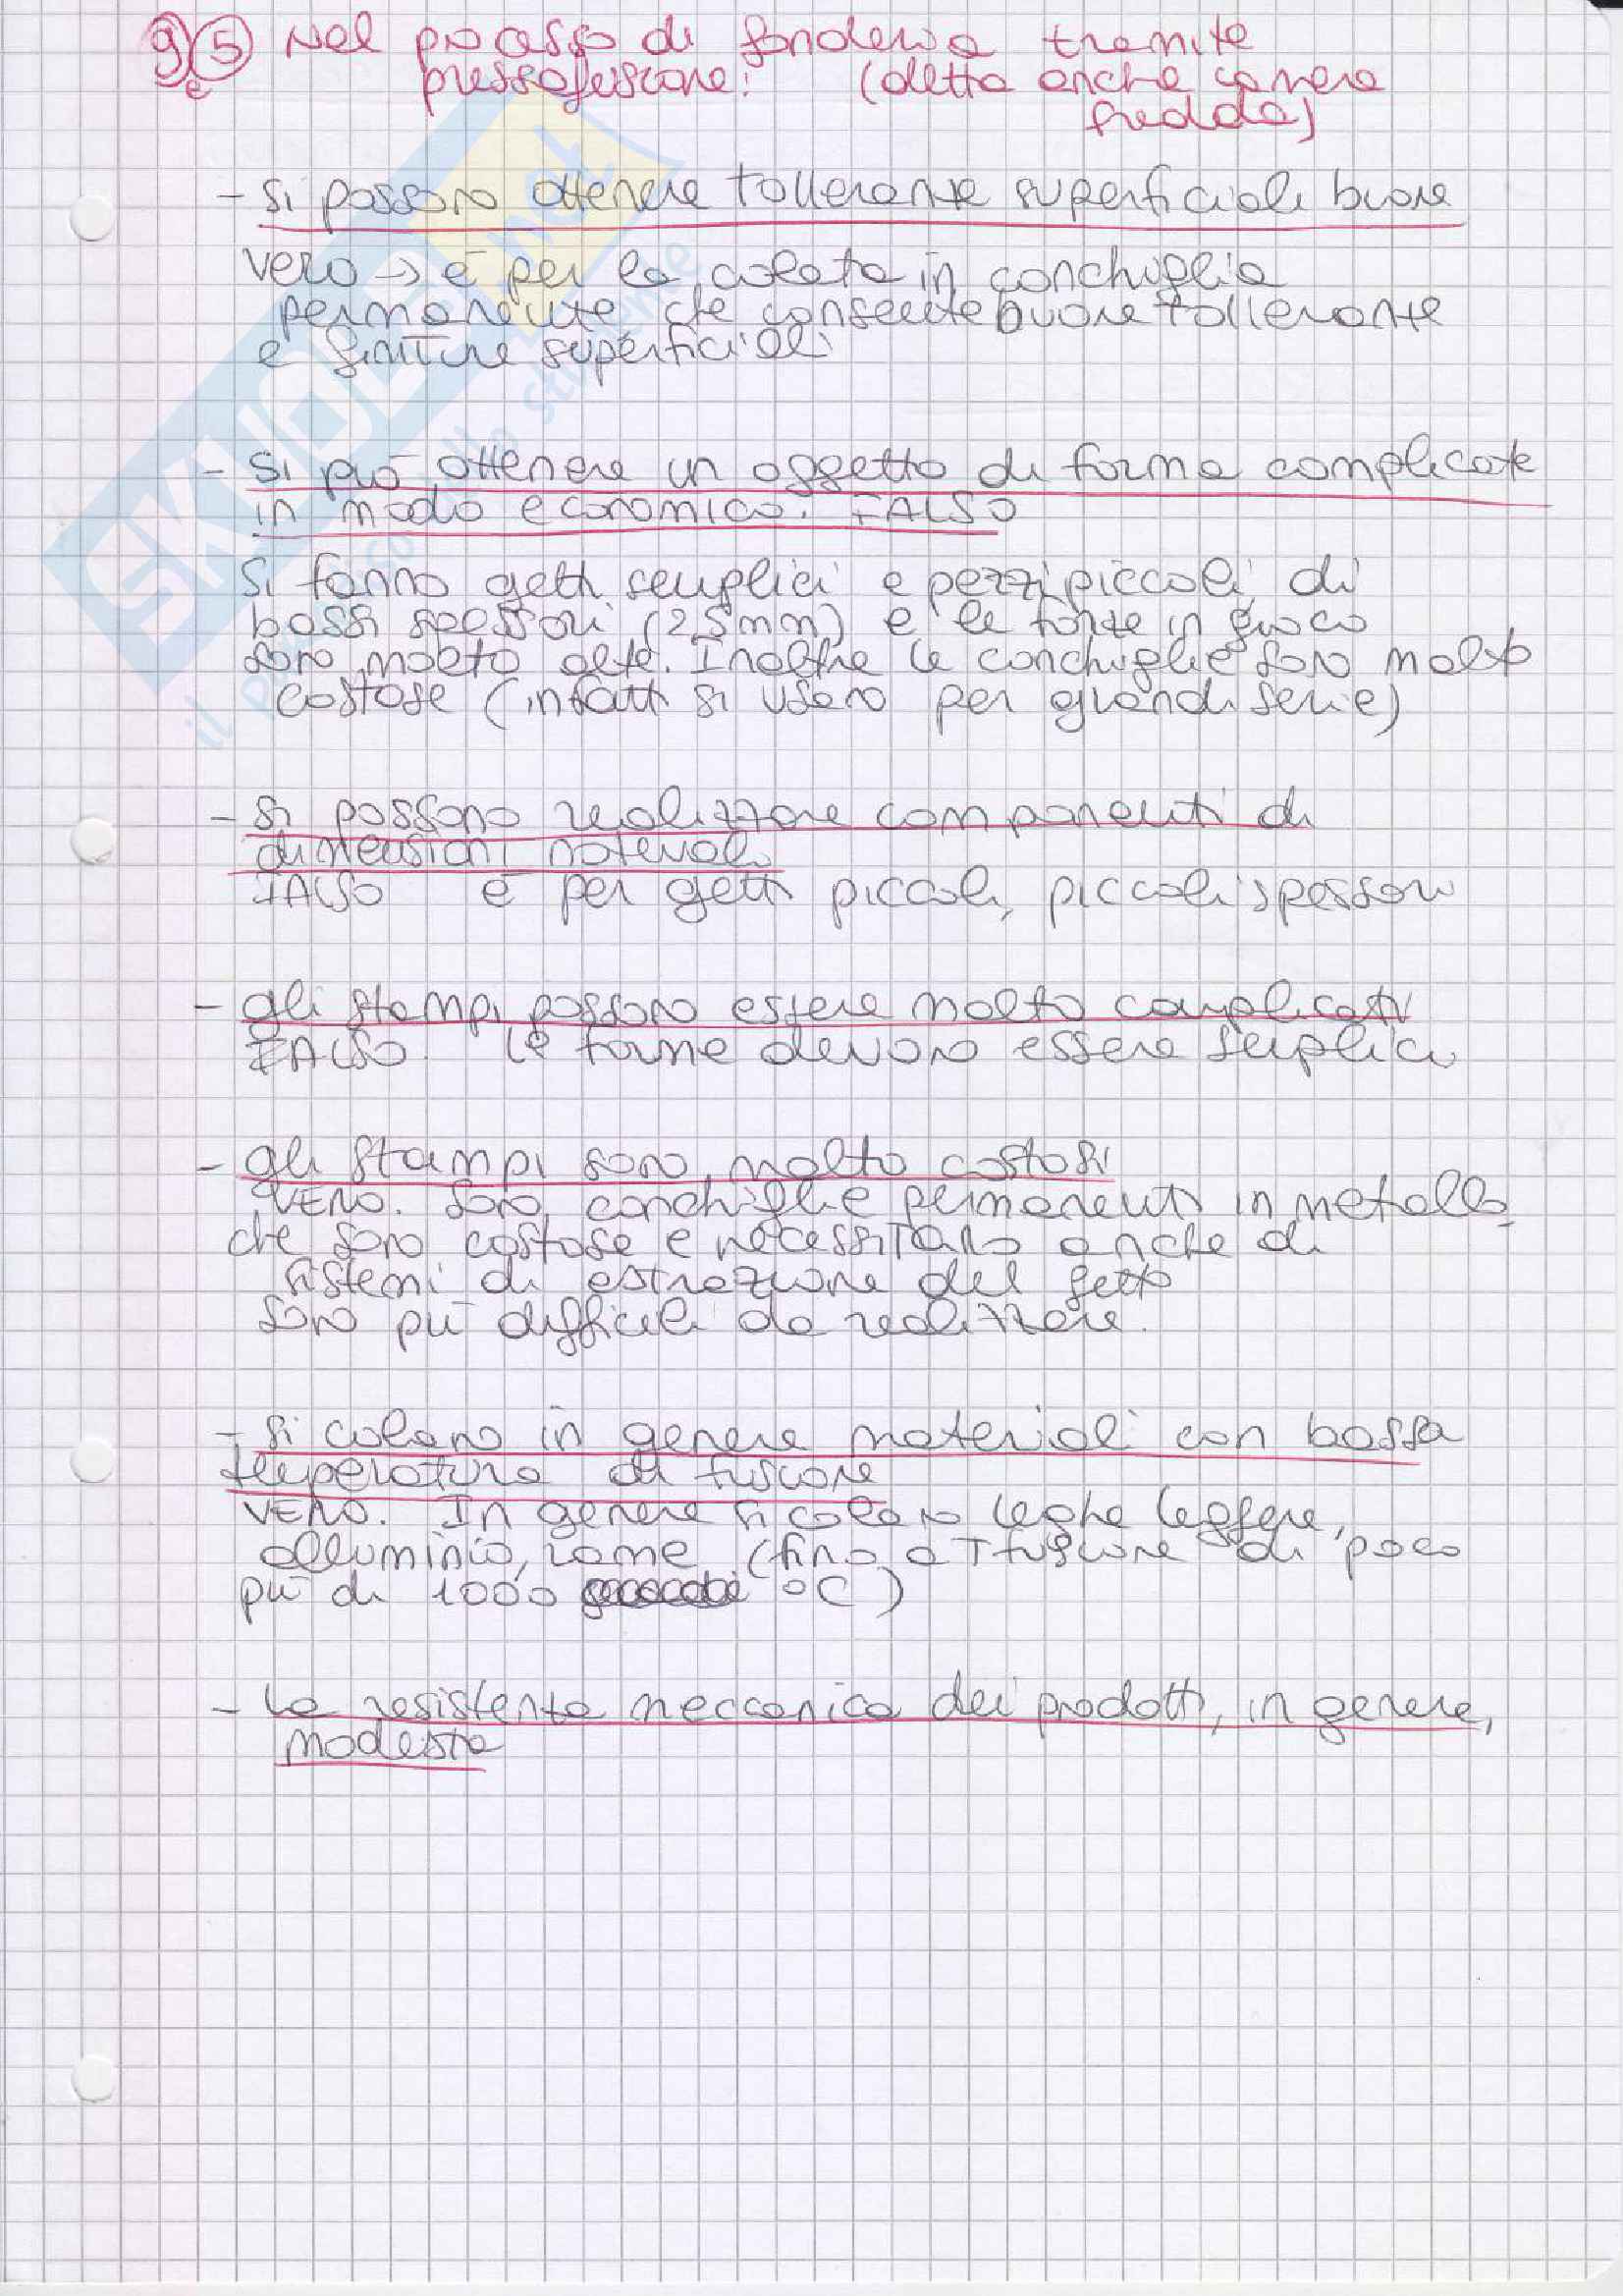 9 e 5 Nel processo di fonderia tramite
pressofusione: (detta anche camera
fredda)
- si possono ottenere tolleranze superficiali buone
vero → è per la colata in conchiglia
permanente che consente buone tolleranze
e finiture superficiali
- si può ottenere un oggetto di forma complicate
in modo economico. FALSO
si fanno getti semplici e pezzi piccoli di
bassi spessori (2,5mm) e le forze in gioco
sono molto alte. Inoltre le conchiglie sono molto
costose (infatti si usano per grandi serie)
- si possono realizzare componenti di
dimensioni notevoli
FALSO è per getti piccoli, piccoli spessori
- gli stampi possono essere molto complicati
FALSO. Le forme devono essere semplici
- gli stampi sono molto costosi
VERO. Sono conchiglie permanenti in metallo
che sono costose e necessitano anche di
sistemi di estrazione del getto
sono più difficili da realizzare.
- si colano in genere materiali con bassa
temperatura di fusione
VERO. In genere si colano leghe leggere,
alluminio, rame (fino a T fusione di poco
più di 1000 °C)
- La resistenza meccanica dei prodotti, in genere,
modesta
SKUOLA.net